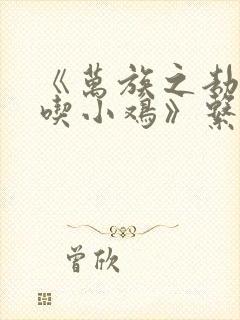 《萬族之劫
喫小鸡》繁
曾欣